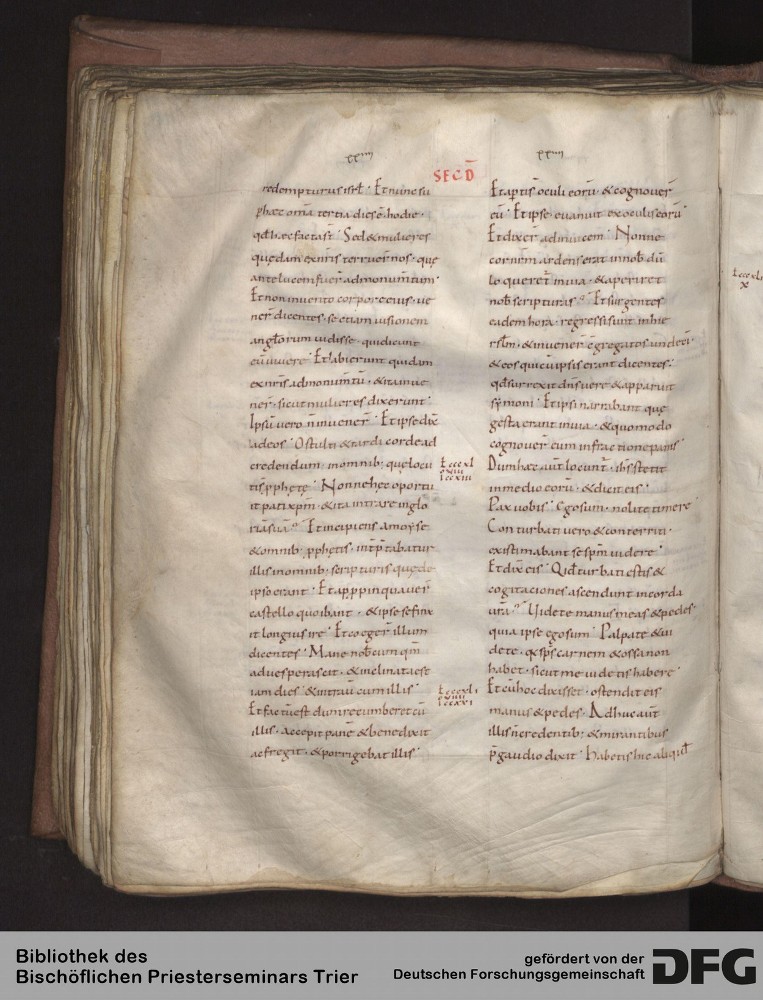 xxiiii
xxiiii
SECD̄
redempturus isrł · Et nunc su
p haec om̄a tertia dies ē hodie ·
qđ haec facta st̄ · Sed & mulieres
quędam ex nr̄is terruer̄ nos · quę
ante lucem fuer̄ ad monum̄tum ·
Et non invento corpore eius · ve
ner̄ dicentes · se etiam visionem
angłorum vidisse · qui dicunt
eū vivere · Et abierunt quidam
ex nr̄is ad monum̄tū · & ita inve
ner̄ · sicut mulieres dixerunt ·
Ipsū vero n̄ invener̄ · Et ipse dix̄
ad eos · O stulti & tardi corde ad
credendum · in omnib; quę locu
ti s̄ pphętę · Nonne hęc oportu
it pati xp̄m · & ita intrare in glo
riā suā · Et incipiens a moyse
& omnib; pphetis · intp̄tabatur
illis in omnib; scripturis quę de
ipso erant · Et appinquaver̄
castello quo ibant · & ipse se finx
it longius ire · Et coeger̄ illum
dicentes · Mane nob̄cum qm̄
advesperascit · & inclinata est
iam dies · & intravi cum illis ·
Et factū est dum recumberet cū
illis · accepit panē & benedixit
ac fregit · & porrigebat illis ·
Et apti s̄ oculi eorū · & cognover̄
eū · Et ipse evanuit ex oculis eorū ·
Et dixer̄ ad invicem · Nonne
cor nr̄m ardens erat in nob̄ dū
loqueret̄ in via · & aperiret
nob̄ scripturas · Et surgentes
eadem hora · regressi sunt in hie
rsłm · & invener̄ cgregatos undeci ·
& eos qui cū ipsis erant dicentes ·
qđ surrexit dn̄s vere & apparuit
symoni · Et ipsi narrabant quę
gesta erant in via · & quomodo
cognover̄ eum in fractione panis ·
Dum haec aūt locunt̄ · ih̄s stetit
in medio eorū · & dicit eis ·
Pax vobis · Ego sum · nolite timere ·
Conturbati vero & conterriti ·
existimabant se sp̄m videre ·
Et dix̄ eis · Qiđ turbati estis &
cogitaciones ascendunt in corda
vr̄a · Videte manus meas & pedes ·
quia ipse ego sum · Palpate & vi
dete · q̄ sps̄ carnem & ossa non
habet · sicut me videtis habere ·
Et cū hoc dixisset · ostendit eis
manus & pedes · Adhuc aūt
illis n̄ credentib; & mirantibus
p̄ gaudio dixit · Habetis hic aliqiđ
Bibliothek des
Bischöflichen Priesterseminars Trier
gefördert von der
Deutschen Forschungsgemeinschaft
DFG